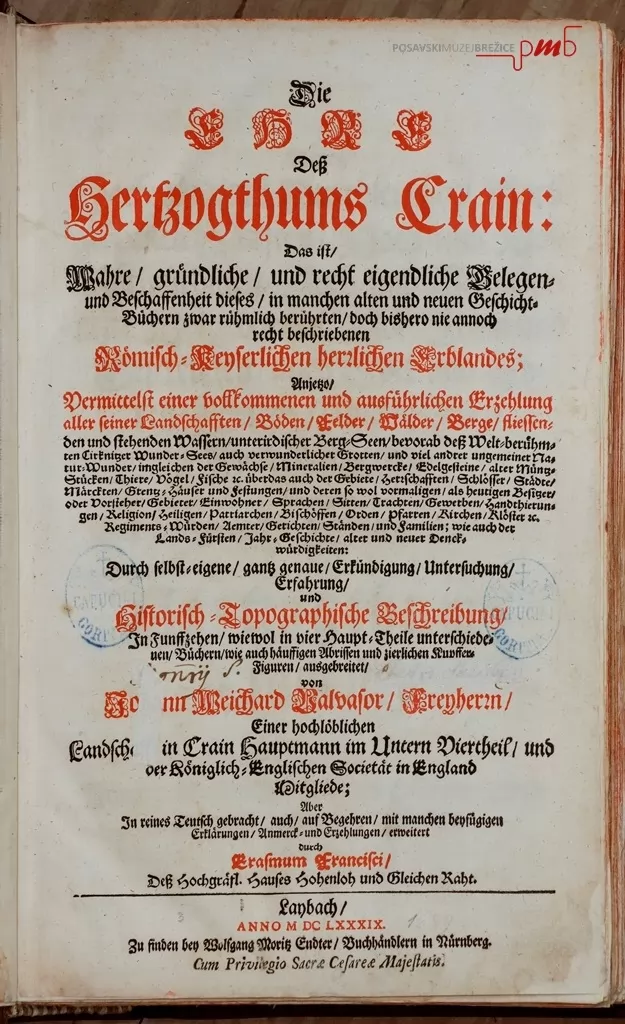 POSAVSKIMUZEJBREŽICE pmb
Die
EHRE
Deß
Hertzogthums Crain:
Das ist/
Wahre/ gründliche/ und recht eigendliche Belegen-
und Beschaffenheit dieses/ in manchen alten und neuen Geschicht-
Büchern zwar rühmlich berührten/ doch bishero nie annoch
recht beschriebenen
Römisch-Keyserlichen herrlichen Erblandes;
Anjetzo/
Vermittelst einer vollkommenen und ausführlichen Erzehlung
aller seiner Landschafften/ Böden/ Felder/ Wälder/ Berge/ fliessen-
den und stehenden Wassern/ unterirdischer Berg-Seen/ bevorab deß Welt-berühm-
ten Cirknitzer Wunder-Sees/ auch verwunderlicher Grotten/ und viel andrer ungemeiner Na-
tur-Wunder/ imgleichen der Gewächse/ Mineralien/ Bergwercke/ Edelgesteine/ alter Müntz-
Stücken/ Thiere/ Vögel/ Fische ꝛc. überdas auch der Gebiete/ Herrschafften/ Schlösser/ Städte/
Märckten/ Grentz-Häuser und Festungen/ und deren so wol vormaligen/ als heutigen Besitzer/
oder Vorsteher/ Gebieter/ Einwohner/ Sprachen/ Sitten/ Trachten/ Gewerben/ Handthierun-
gen/ Religion/ Heiligen/ Patriarchen/ Bischöffen/ Orden/ Pfarren/ Kirchen/ Klöster ꝛc.
Regiments-Würden/ Aemter/ Gerichten/ Ständen/ und Familien; wie auch der
Lands-Fürsten/ Jahr-Geschichte/ alter und neuer Denck-
würdigkeiten:
Durch selbst-eigene/ gantz genaue/ Erkündigung/ Untersuchung/
Erfahrung/
und
Historisch-Topographische Beschreibung/
In Funffzehen/ wiewol in vier Haupt-Theile unterschiede-
nen/ Büchern/ wie auch häuffigen Abrissen und zierlichen Kupffer-
Figuren/ ausgebreitet/
von
Jo nn Weichard Valvasor/ Freyherrn/
Einer hochlöblichen
Landsch in Crain Hauptmann im Untern Viertheil/ und
der Königlich-Englischen Societät in England
Mitgliede;
Aber
In reines Teutsch gebracht/ auch/ auf Begehren/ mit manchen beyfügigen
Erklärungen/ Anmerck- und Erzehlungen/ erweitert
durch
Erasmum Francisci/
Deß Hochgräfl. Hauses Hohenloh und Gleichen Raht.
Laybach/
ANNO M DC LXXXIX.
Zu finden bey Wolfgang Moritz Endter/ Buchhändlern in Nürnberg.
Cum Privilegio Sacræ Cesareæ Majestatis.